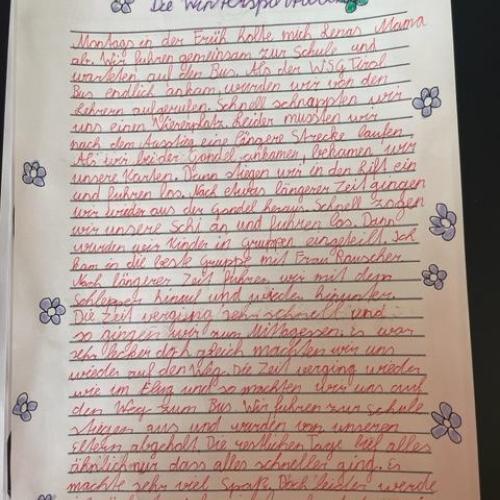 Die Wintersport
Montags in der Früh holte mich Lenas Mama
ab. Wir fuhren gemeinsam zur Schule und
warteten auf den Bus. Als der WSG Tirol
Bus endlich ankam, wurden wir von den
Lehrern aufgerufen. Schnell schnappten wir
uns einen Viererplatz. Leider mussten wir
nach dem Ausstieg eine längere Strecke laufen.
Als wir bei der Gondel ankamen, bekamen wir
unsere Karten. Dann stiegen wir in den Lift ein
und fuhren los. Nach etwas längerer Zeit gingen
wir wieder aus der Gondel heraus. Schnell zogen
wir unsere Schi an und fuhren los. Dann
wurden wir Kinder in Gruppen eingeteilt. Ich
kam in die beste Gruppe mit Frau Rauscher
Nach längerer Zeit fuhren wir mit dem
Schlepper hinauf und wieder hinunter.
Die Zeit verging sehr schnell und
so gingen wir zum Mittagessen. Es war
sehr lecker doch gleich machten wir uns
wieder auf den Weg. Die Zeit verging wieder
wie im Flug und so machten wir uns auf
den Weg zum Bus. Wir fuhren zur Schule
stiegen aus und wurden von unseren
Eltern abgeholt. Die restlichen Tage lief alles
ähnlich nur dass alles schneller ging. Es
machte sehr viel Spaß. Doch leider werde